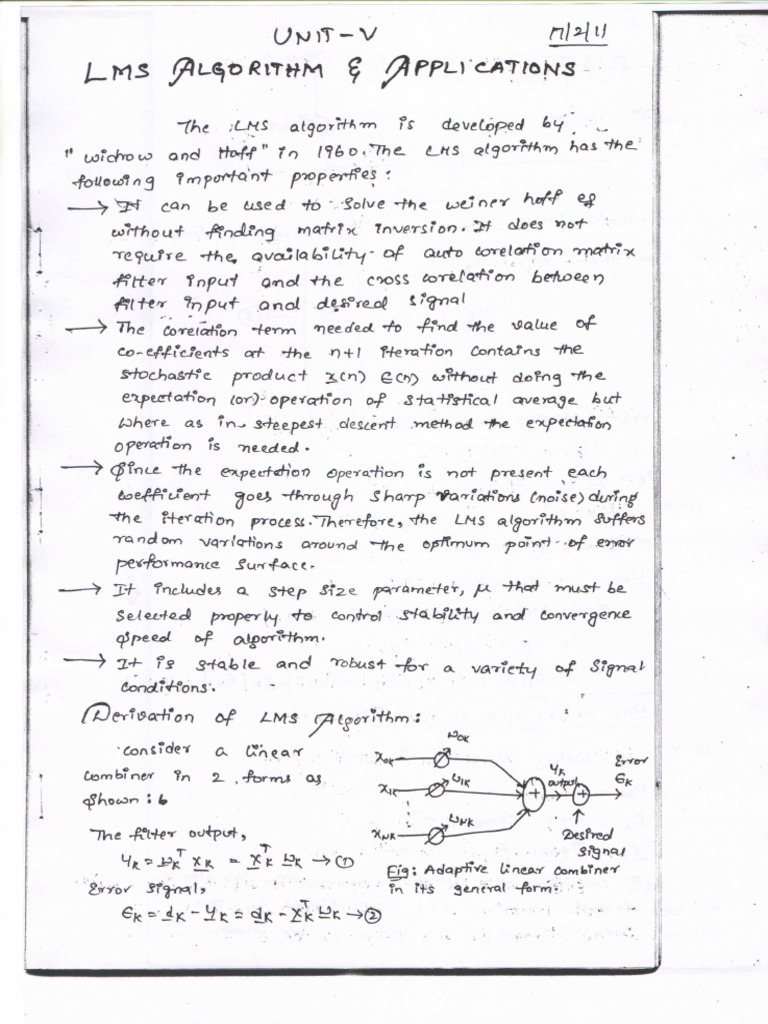 UNIT-V
17/2/11
LMS ALGORITHM & APPLICATIONS
The LMS algorithm is developed by
"widrow and Hoff" in 1960. The LMS algorithm has the
following important properties:
→ It can be used to solve the weiner hoff eq
without finding matrix inversion. It does not
require the availability of auto corelation matrix
filter input and the cross corelation between
filter input and desired signal
→ The corelation term needed to find the value of
co-efficients at the n+1 iteration contains the
stochastic product x(n) ∈(n) without doing the
expectation (or) operation of statistical average but
where as in steepest descent method the expectation
operation is needed.
→ Since the expectation operation is not present each
coefficient goes through sharp variations (noise) during
the iteration process. Therefore, the LMS algorithm suffers
random variations around the optimum point of error
performance surface.
→ It includes a step size parameter, μ that must be
selected properly to control stability and convergence
speed of algorithm.
→ It is stable and robust for a variety of signal
conditions.
Derivation of LMS Algorithm:
consider a linear
combiner in 2 forms as
shown:
The filter output,
y_K = w_K^T x_K = x_K^T w_K → ①
Error signal,
∈_K = d_K - y_K = d_K - x_K^T w_K → ②
x_0K
w_0K
x_1K
w_1K
x_NK
w_NK
+
y_K
output
+
Error
∈_K
Desired
signal
Fig: Adaptive linear combiner
in its general form: